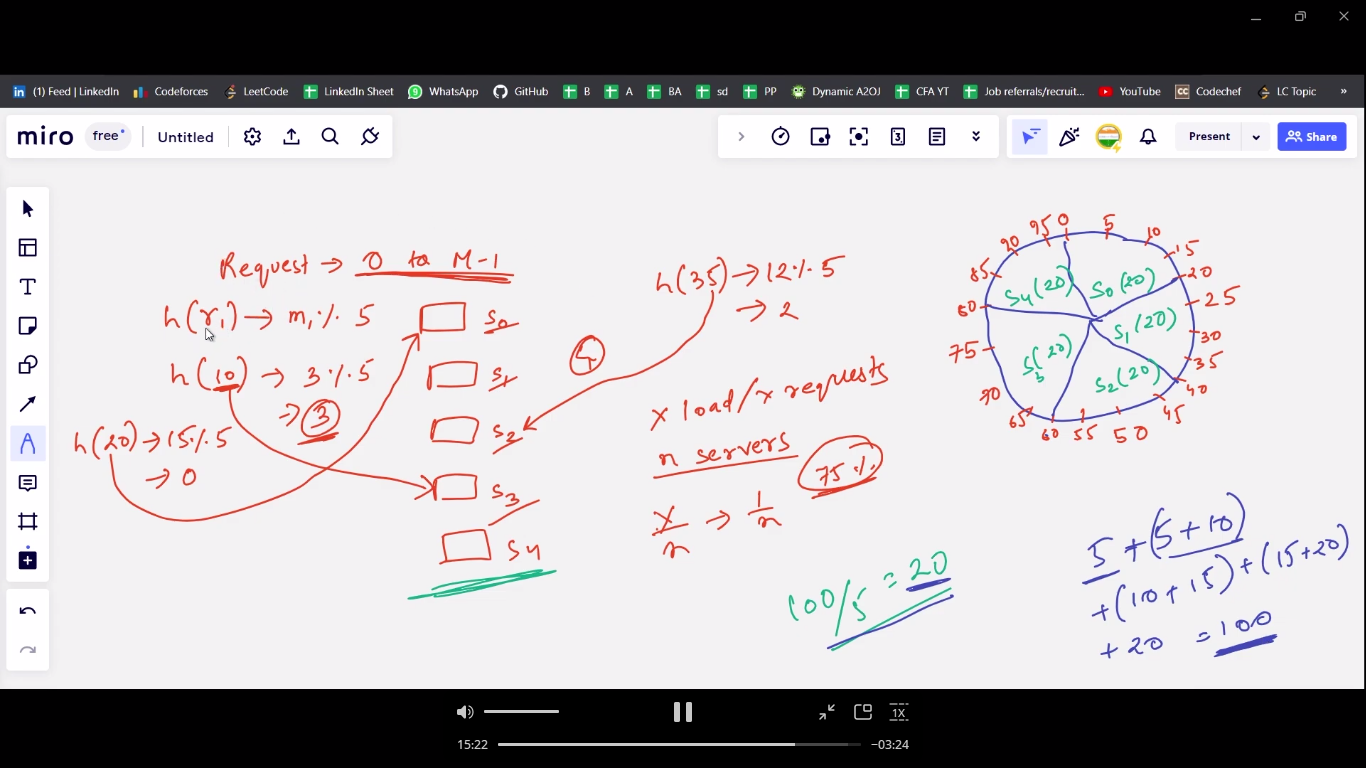 (1) Feed | LinkedIn Codeforces LeetCode LinkedIn Sheet WhatsApp GitHub B A BA sd PP Dynamic A2OJ CFA YT Job referrals/recruit... YouTube Codechef LC Topic »
miro free Untitled
Present Share
Request → 0 to M-1
h(r₁) → m₁ % 5
h(10) → 3 % 5
→ 3
h(20) → 15 % 5
→ 0
S0
S1
S2
S3
S4
h(35) → 12 % 5
→ 2
4
x load/x requests
n servers
75 %
x/n → 1/n
100/5 = 20
0 5 10 15 20 25 30 35 40 45 50 55 60 65 70 75 80 85 90 95
S4(20) S0(20)
S1(20)
S3(20)
S2(20)
5 + (5+10)
+ (10+15) + (15+20)
+ 20 = 100
1X
15:22 −03:24